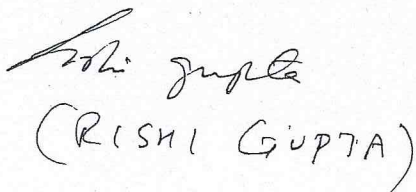 Rishi Gupta
(RISHI GUPTA)